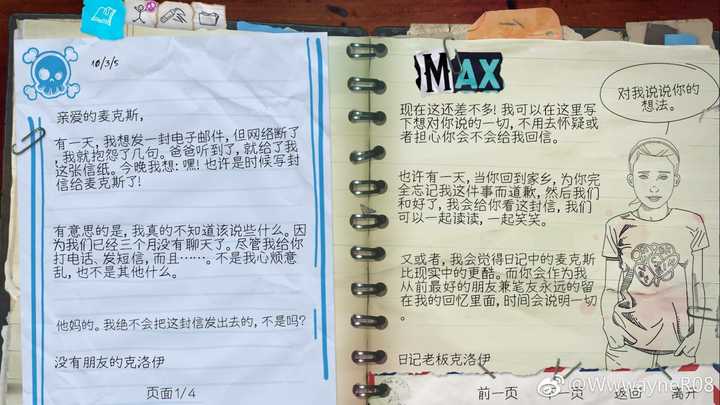 10/3/5
亲爱的麦克斯,
有一天, 我想发一封电子邮件, 但网络断了
, 我就抱怨了几句。爸爸听到了, 就给了我
这张信纸。今晚我想: 嘿! 也许是时候写封
信给麦克斯了!
有意思的是, 我真的不知道该说些什么。因
为我们已经三个月没有聊天了。尽管我给你
打电话、发短信, 而且……。不是我心烦意
乱, 也不是其他什么。
他妈的。我绝不会把这封信发出去的, 不是吗?
没有朋友的克洛伊
页面1/4
MAX
现在这还差不多! 我可以在这里写
下想对你说的一切, 不用去怀疑或
者担心你会不会给我回信。
也许有一天, 当你回到家乡, 为你完
全忘记我这件事而道歉, 然后我们
和好了, 我会给你看这封信, 我们
可以一起读读, 一起笑笑。
又或者, 我会觉得日记中的麦克斯
比现实中的更酷。而你会作为我
从前最好的朋友兼笔友永远的留
在我的回忆里面, 时间会说明一切
。
日记老板克洛伊
对我说说你的
想法。
前一页 下一页 返回 离开
@WwwayneR08